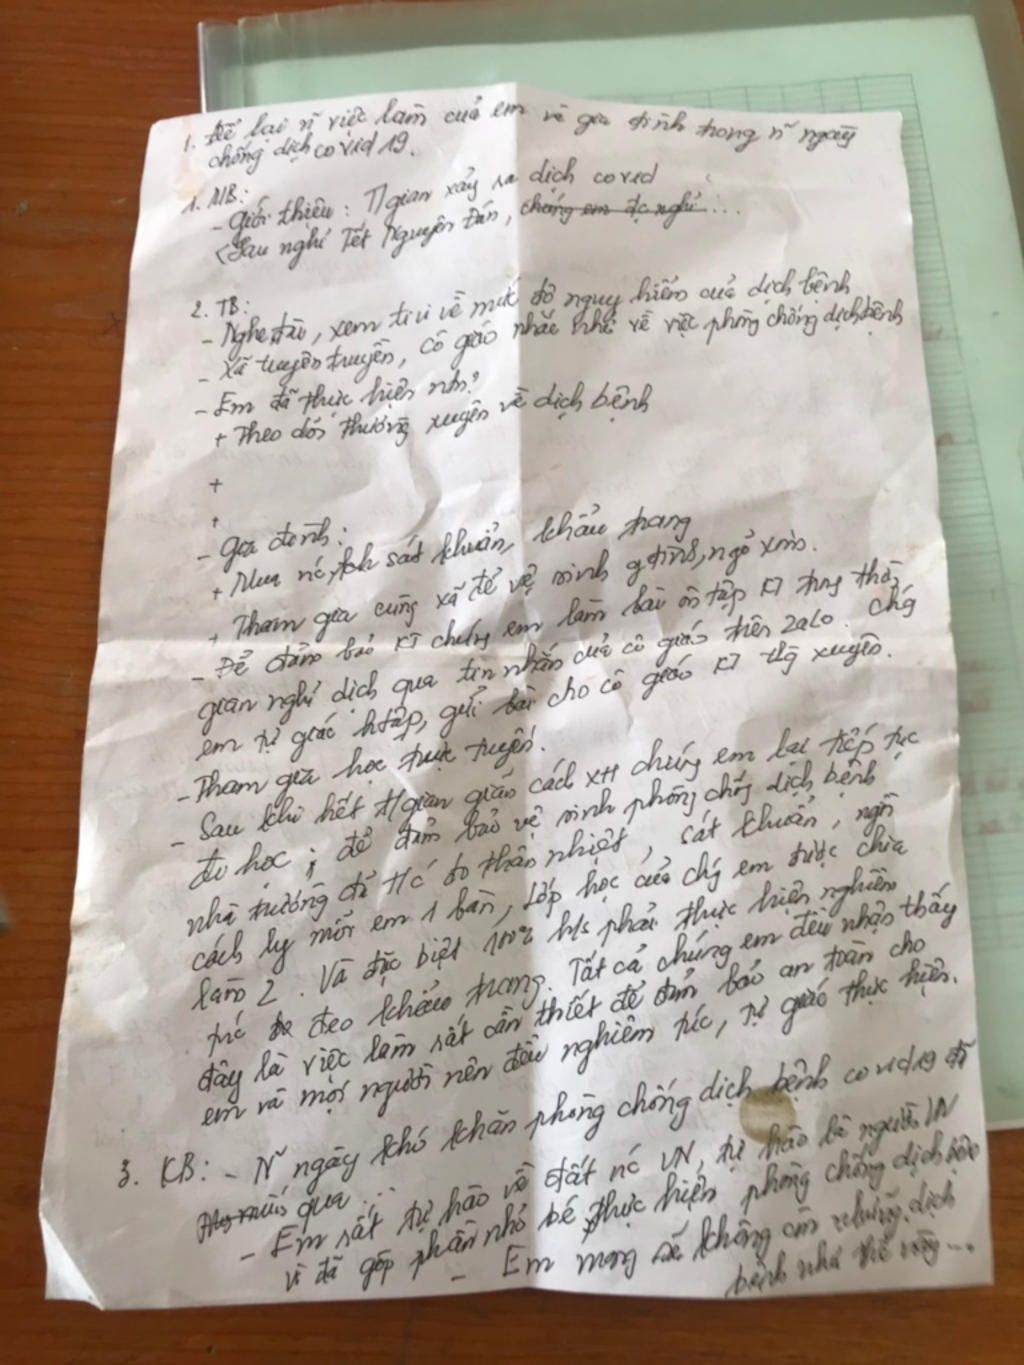 1. Để lại ~ việc làm của em và gia đình trong ~ ngày
chống dịch covid 19.
1. MB:
- Giới thiệu: T/gian xảy ra dịch covid
(Sau nghỉ Tết Nguyên Đán, chúng em đc nghỉ ...
2. TB:
- Nghe đài, xem ti vi về mức độ nguy hiểm của dịch bệnh
- Xã tuyên truyền, cô giáo nhắc nhở về việc phòng chống dịch bệnh
- Em đã thực hiện ntn?
+ Theo dõi thường xuyên về dịch bệnh
+
+
- Gia đình:
+ Mua nc sát khuẩn, khẩu trang
+ Tham gia cùng xã để vệ sinh gđình, ngõ xóm.
- Để đảm bảo KT chúng em làm bài ôn tập KT trong thời
gian nghỉ dịch qua tin nhắn của cô giáo trên zalo. Chg
em tự giác htập, gửi bài cho cô giáo KT thg xuyên.
- Tham gia học trực tuyến.
- Sau khi hết t/gian giãn cách XH chúng em lại tiếp tục
đi học; để đảm bảo vệ sinh phòng chống dịch bệnh
nhà trường đã t/c đo thân nhiệt, sát khuẩn, ngồi
cách ly mỗi em 1 bàn, lớp học của chg em được chia
làm 2. Và đặc biệt 100% h/s phải thực hiện nghiêm
túc đeo khẩu trang. Tất cả chúng em đều nhận thấy
đây là việc làm rất cần thiết để đảm bảo an toàn cho
em và mọi người nên đều nghiêm túc, tự giác thực hiện.
3. KB: - ~ ngày khó khăn phòng chống dịch bệnh covid 19 đã
qua ...
- Em rất tự hào về đất nc VN, tự hào là người VN
vì đã góp phần nhỏ bé thực hiện phòng chống dịch bệnh
- Em mong sẽ không còn những dịch
bệnh như thế này ...